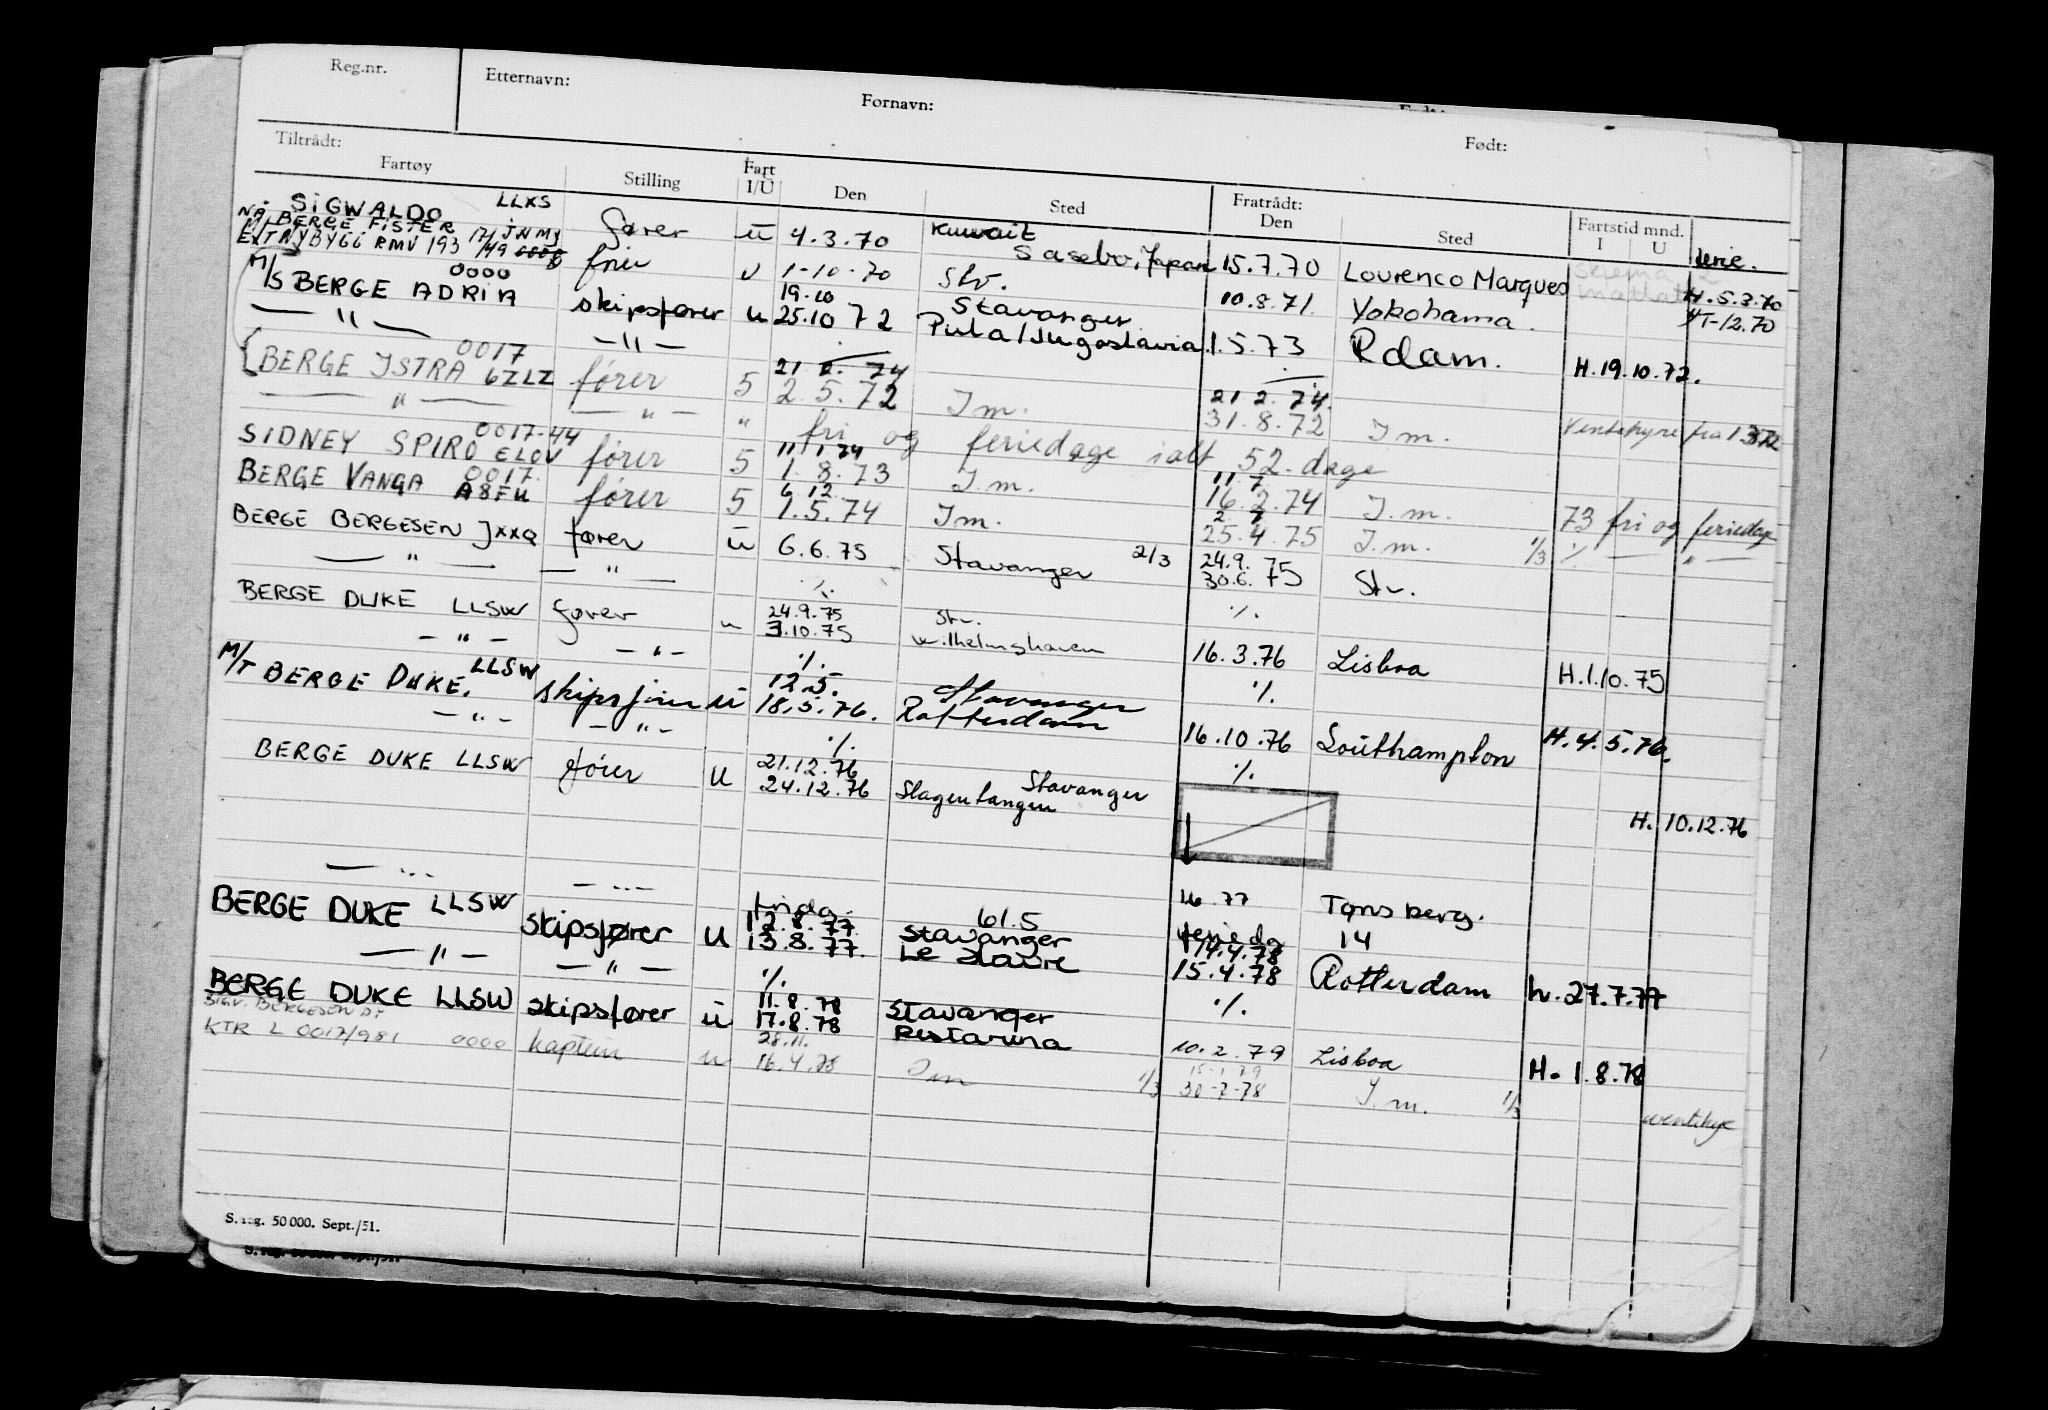 Reg.nr. Etternavn: Fornavn: Født:
Tiltrådt: Fratrådt:
Fartøy Stilling Fart I/U Den Sted Den Sted Fartstid mnd. I U
SIGWALDO LLXS fører ü 4.3.70 Kuwait 15.7.70 Lourenco Marques H.5.3.70
BERGE FISTER JNMJ
EXT NYBYGG RMV 193 17/49 0000 fører u 1-10-70 Sasebo, Japan Stv. 10.8.71. Yokohama. HT-12.70
M/S BERGE ADRIA 0000 skipsfører u 19.10 Stavanger
— " — — " — 25.10 72 Pula/Jugoslavia 1.5.73 Rdam. H.19.10.72.
BERGE ISTRA 0017 6ZLZ fører 5 2.5.72 I m. 31.8.72 I m. Ventehyre fra 1.372
— " — — " — " fri og feriedage ialt 52. dage
SIDNEY SPIRO 0017-44 ELOV fører 5 1.8.73 I.m. 16.2.74 I.m. 73 fri og feriedage
BERGE VANGA 0017. A8FU fører 5 1.5.74 Im. 25.4.75 I.m. 1/3 — " —
BERGE BERGESEN JXXQ fører ü 6.6.75 Stavanger 2/3 24.9.75
— " — — " — 30.6.75 Stv.
BERGE DUKE LLSW fører u 24.9.75 Stv. ./.
— " — — " — 3.10.75 Wilhelmshaven 16.3.76 Lisboa H.1.10.75
M/T BERGE DUKE. LLSW skipsfører ü 12.5. Stavanger ./.
— " — — " — 18.5.76. Rotterdam 16.10.76 Southampton H.4.5.76.
BERGE DUKE LLSW fører u 21.12.76 Stavanger ./.
24.12.76 Slagentangen H. 10.12.76
— " — — " — fridg. 61.5 77 Tønsberg.
BERGE DUKE LLSW skipsfører u 12.8.77. Stavanger feriedg 14
— " — — " — 13.8.77. Le Havre 15.4.78 Rotterdam h. 27.7.77
BERGE DUKE LLSW skipsfører ü 11.8.78 Stavanger ./.
17.8.78 10.2.79 Lisboa H. 1.8.78
SIGV. BERGESEN D.Y
KTR L 0017/981 0000 kaptein u 16.4.78 Im 1/3 30-7-78 I.m. 1/3
S. reg. 50 000. Sept./51.